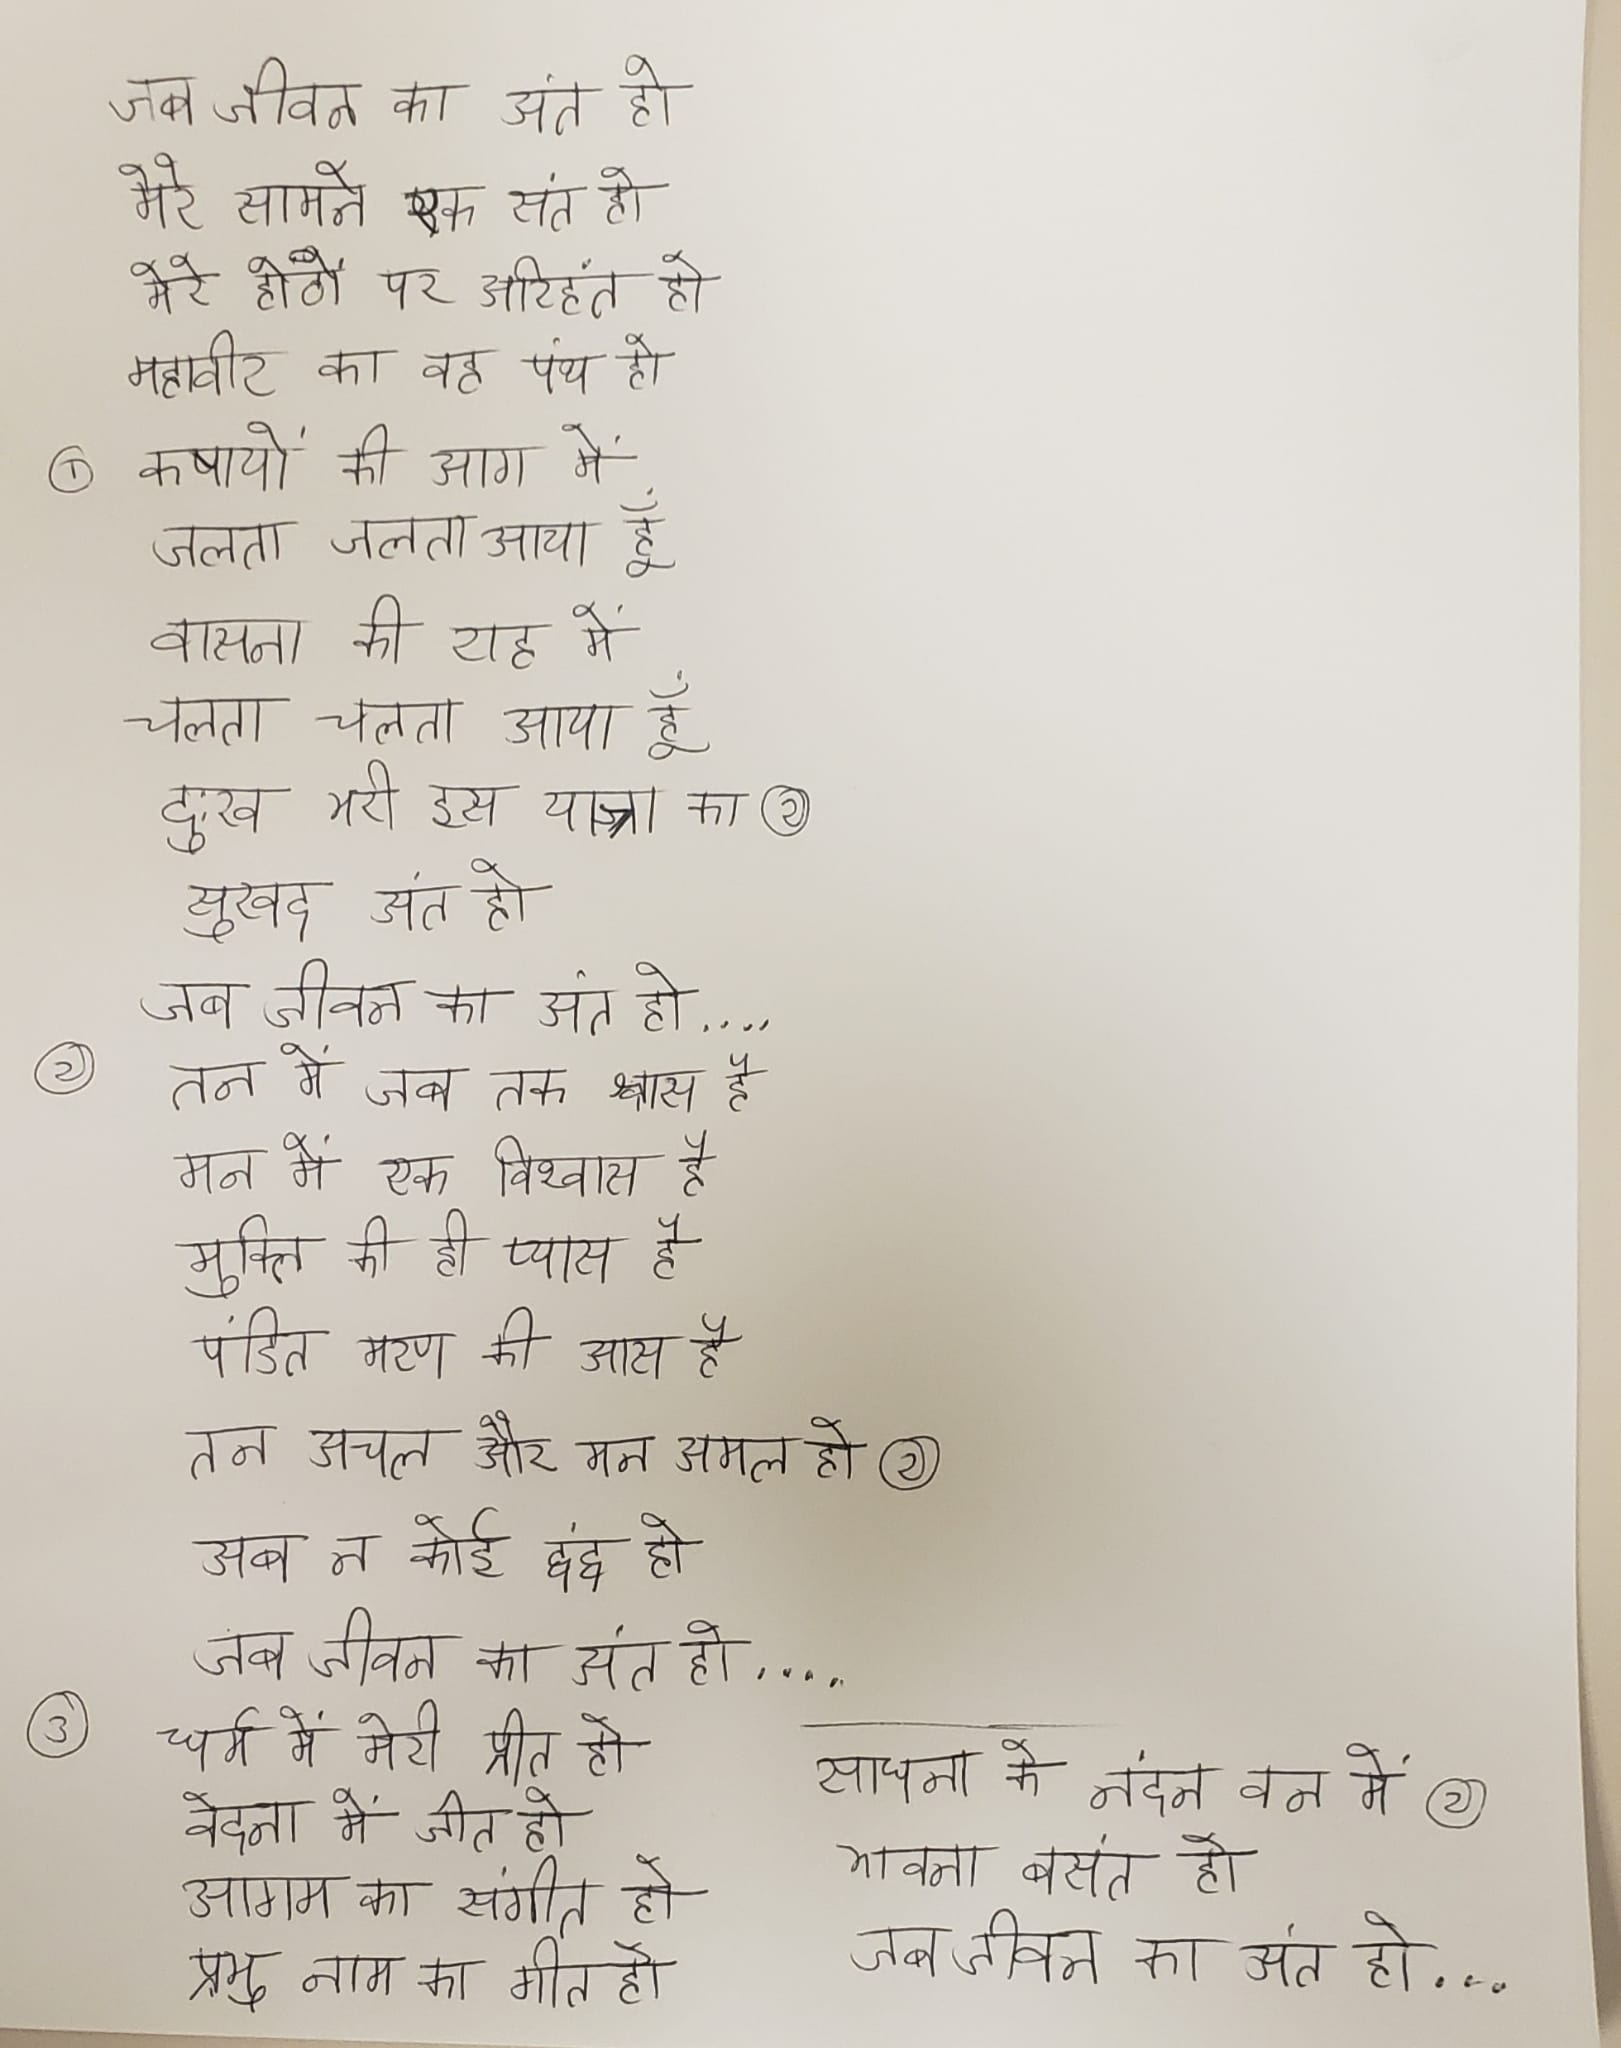 जब जीवन का अंत हो
मेरे सामने एक संत हो
मेरे होठों पर अरिहंत हो
महावीर का वह पंथ हो
① कषायों की आग में
जलता जलता आया हूँ
वासना की राह में
चलता चलता आया हूँ
दुःख भरी इस यात्रा का ②
सुखद अंत हो
जब जीवन का अंत हो....
② तन में जब तक श्वास है
मन में एक विश्वास है
मुक्ति की ही प्यास है
पंडित मरण की आस है
तन अचल और मन अमल हो ②
अब न कोई द्वंद्व हो
जब जीवन का अंत हो.....
③ धर्म में मेरी प्रीत हो
वेदना में जीत हो
आगम का संगीत हो
प्रभु नाम का गीत हो
साधना के नंदन वन में ②
भावना बसंत हो
जब जीवन का अंत हो....